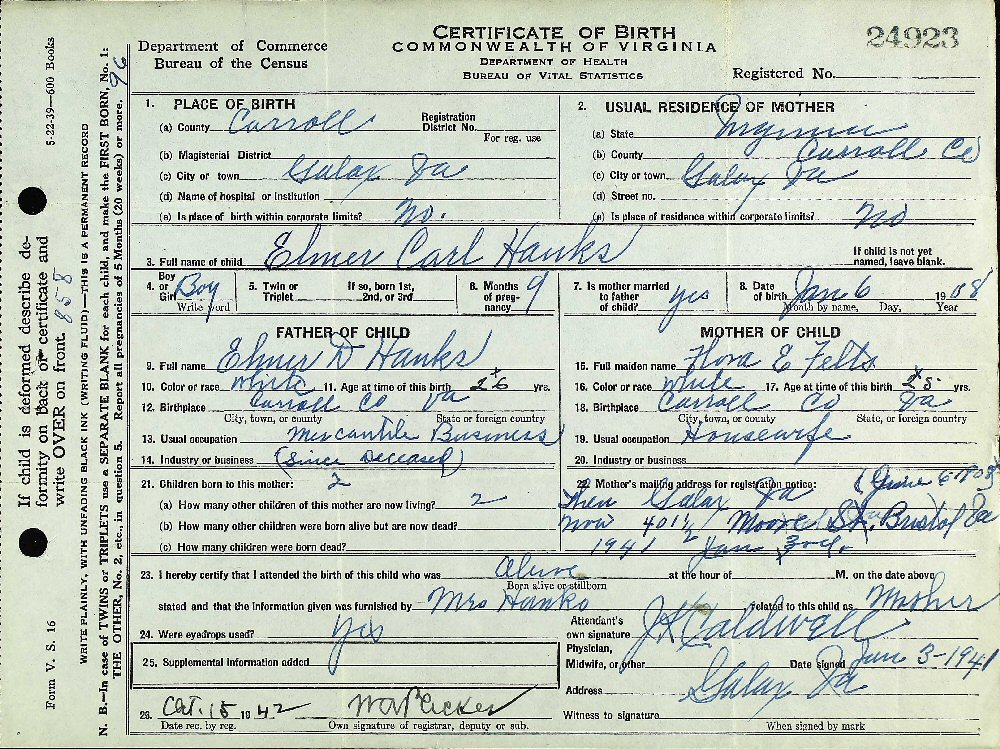 CERTIFICATE OF BIRTH
COMMONWEALTH OF VIRGINIA
DEPARTMENT OF HEALTH
BUREAU OF VITAL STATISTICS
Department of Commerce
Bureau of the Census
24923
Registered No.
5-22-39—600 Books
Form V. S. 16
If child is deformed describe de-
formity on back of certificate and
write OVER on front. 858
WRITE PLAINLY, WITH UNFADING BLACK INK (WRITING FLUID)—THIS IS A PERMANENT RECORD
N. B.—In case of TWINS or TRIPLETS use a SEPARATE BLANK for each child, and make the FIRST BORN, No. 1:
THE OTHER, No. 2, etc., in question 5. Report all pregnancies of 5 Months (20 weeks) or more. 96
1. PLACE OF BIRTH
(a) County Carroll Registration District No.
For reg. use
(b) Magisterial District
(c) City or town Galax Va
(d) Name of hospital or institution
(e) Is place of birth within corporate limits? No.
2. USUAL RESIDENCE OF MOTHER
(a) State Virginia
(b) County Carroll Co
(c) City or town Galax Va
(d) Street no.
(e) Is place of residence within corporate limits? No
3. Full name of child Elmer Carl Hanks If child is not yet named, leave blank.
4. Boy or Girl Boy
Write word
5. Twin or Triplet If so, born 1st, 2nd, or 3rd
6. Months of pregnancy 9
7. Is mother married to father of child? yes
8. Date of birth Jan 6 1908
Month by name, Day, Year
FATHER OF CHILD
9. Full name Elmer D Hanks
10. Color or race White 11. Age at time of this birth 26 yrs.
12. Birthplace Carroll Co Va
City, town, or county State or foreign country
13. Usual occupation Mercantile Business
14. Industry or business (Since Deceased)
MOTHER OF CHILD
15. Full maiden name Flora E Felts
16. Color or race White 17. Age at time of this birth 25 yrs.
18. Birthplace Carroll Co Va
City, town, or county State, or foreign country
19. Usual occupation Housewife
20. Industry or business
21. Children born to this mother: 2
(a) How many other children of this mother are now living? 2
(b) How many other children were born alive but are now dead?
(c) How many children were born dead?
22. Mother's mailing address for registration notice: 6 1908
Then Galax Va
Now 401½ Moore St. Bristol Va
1941 Jan 3rd.
23. I hereby certify that I attended the birth of this child who was Alive at the hour of M. on the date above
Born alive or stillborn
stated and that the information given was furnished by Mrs Hanks related to this child as Mother
24. Were eyedrops used? yes
Attendant's own signature J K Caldwell
Physician, Midwife, or other Date signed Jan 3-1941
25. Supplemental information added
Address Galax Va
26. Oct. 15 1942 W A Plecker
Date rec. by reg. Own signature of registrar, deputy or sub.
Witness to signature
When signed by mark